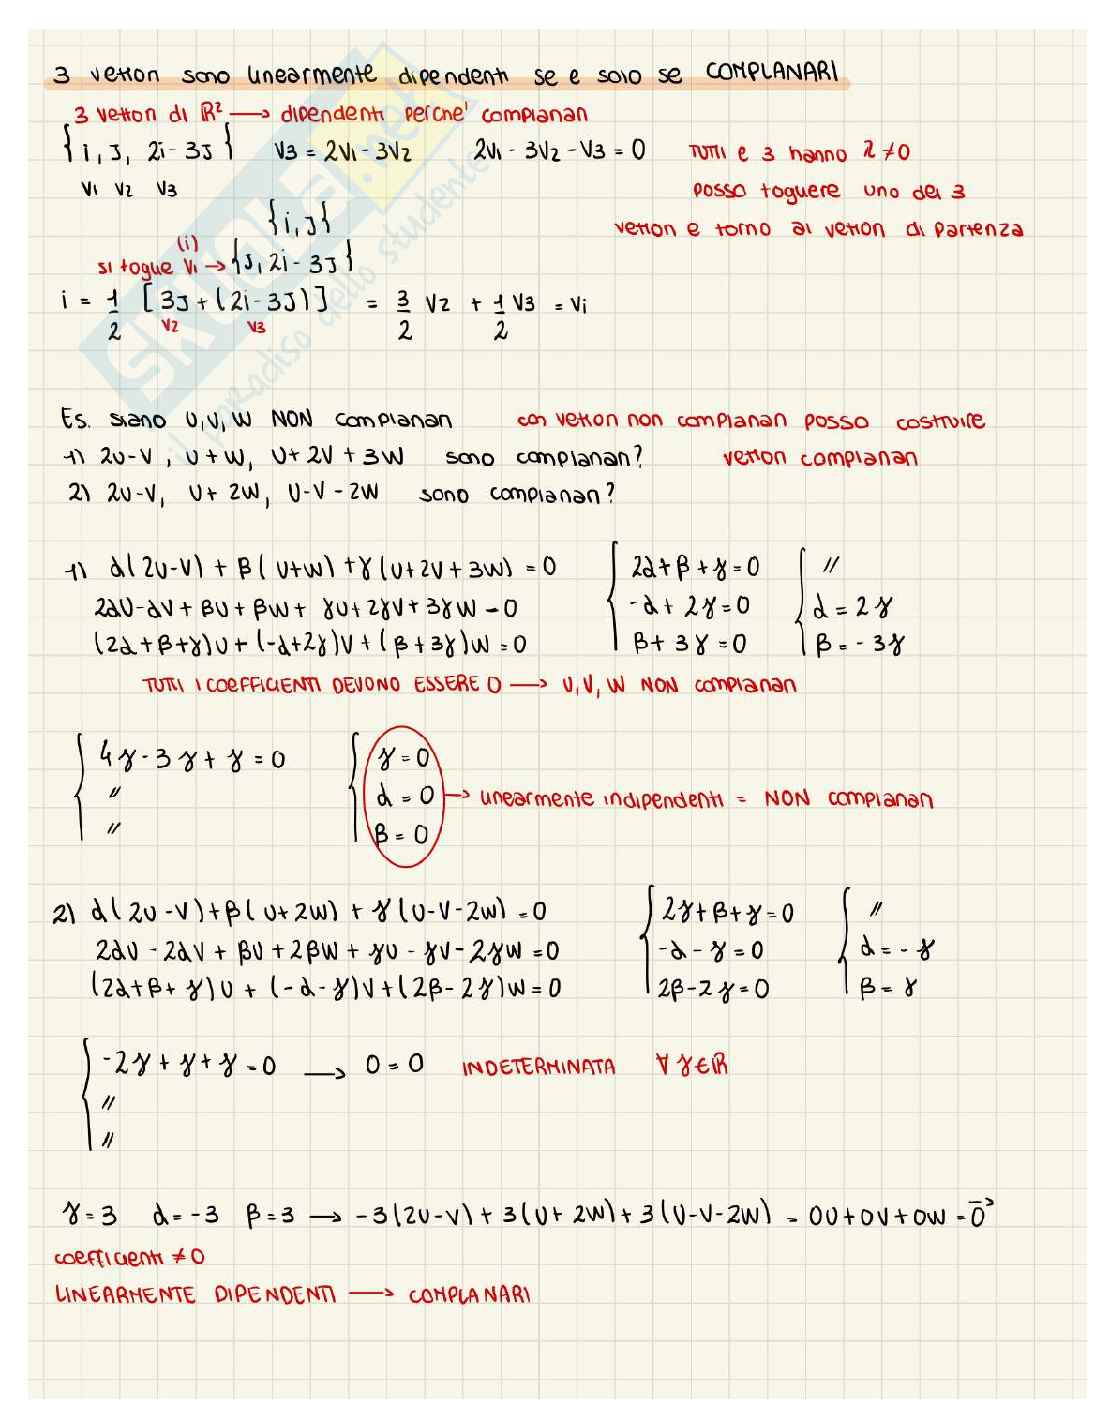 3 vettori sono linearmente dipendenti se e solo se COMPLANARI
3 vettori di ℝ² → dipendenti perche' complanari
{i, j, 2i - 3j} v3 = 2v1 - 3v2 2v1 - 3v2 - v3 = 0 TUTTI e 3 hanno λ ≠ 0
v1 v2 v3 posso togliere uno dei 3
{i, j} vettori e torno ai vettori di partenza
(i)
si toglie v1 → {j, 2i - 3j}
i = 1/2 [3j + (2i - 3j)] = 3/2 v2 + 1/2 v3 = v1
v2 v3
Es. siano u, v, w NON complanari con vettori non complanari posso costruire
1) 2u-v, u+w, u+2v+3w sono complanari? vettori complanari
2) 2u-v, u+2w, u-v-2w sono complanari?
1) α(2u-v) + β(u+w) + γ(u+2v+3w) = 0 { 2α+β+γ=0 { //
2αu-αv+βu+βw+γu+2γv+3γw=0 -α+2γ=0 α=2γ
(2α+β+γ)u+(-α+2γ)v+(β+3γ)w=0 β+3γ=0 β=-3γ
TUTTI I COEFFICIENTI DEVONO ESSERE 0 → u, v, w NON complanari
{ 4γ-3γ+γ=0 { γ=0
// α=0 → linearmente indipendenti = NON complanari
// β=0
2) α(2u-v)+β(u+2w)+γ(u-v-2w)=0 { 2γ+β+γ=0 { //
2αu-2αv+βu+2βw+γu-γv-2γw=0 -α-γ=0 α=-γ
(2α+β+γ)u+(-α-γ)v+(2β-2γ)w=0 2β-2γ=0 β=γ
{ -2γ+γ+γ=0 → 0=0 INDETERMINATA ∀γ∈ℝ
//
//
γ=3 α=-3 β=3 → -3(2u-v)+3(u+2w)+3(u-v-2w)=0u+0v+0w=0⃗
coefficienti ≠0
LINEARMENTE DIPENDENTI → COMPLANARI
skuola.net
il paradiso dello studente